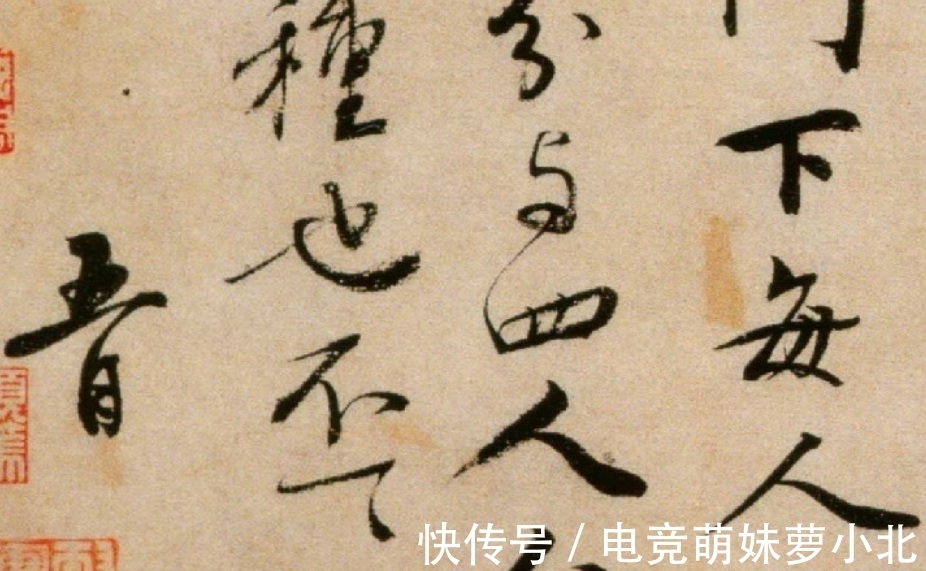 下每人
分与四人
種也不
五月
快传号 / 电竞萌妹萝小北